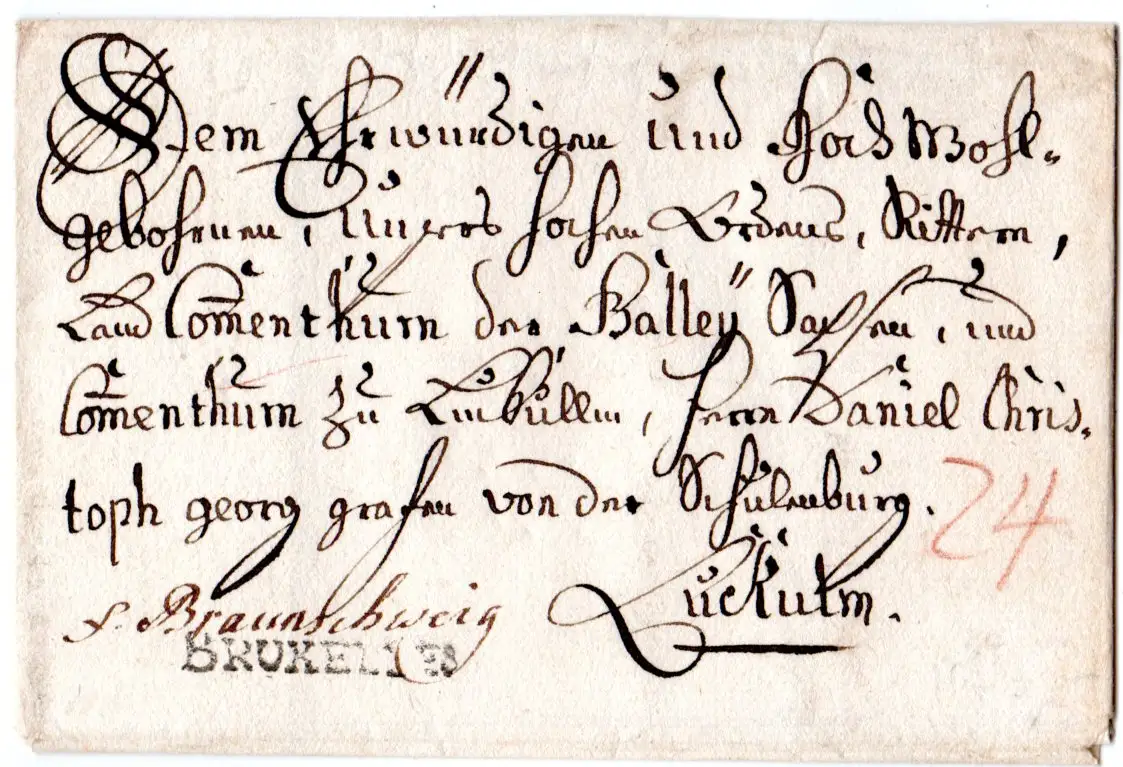 Dem Ehrwürdigen Und Hoch Wohl-
gebohrnen, Unsers hohen Ordens, Rittern,
Land Com̅enthurn der Balleÿ Sachsen, und
Com̅enthurn zu Lucküllm, Herrn Daniel Chris-
toph georg grafen von der Schulenburg.
24
p. Braunschweig
Luckulm.
BRUXELLES